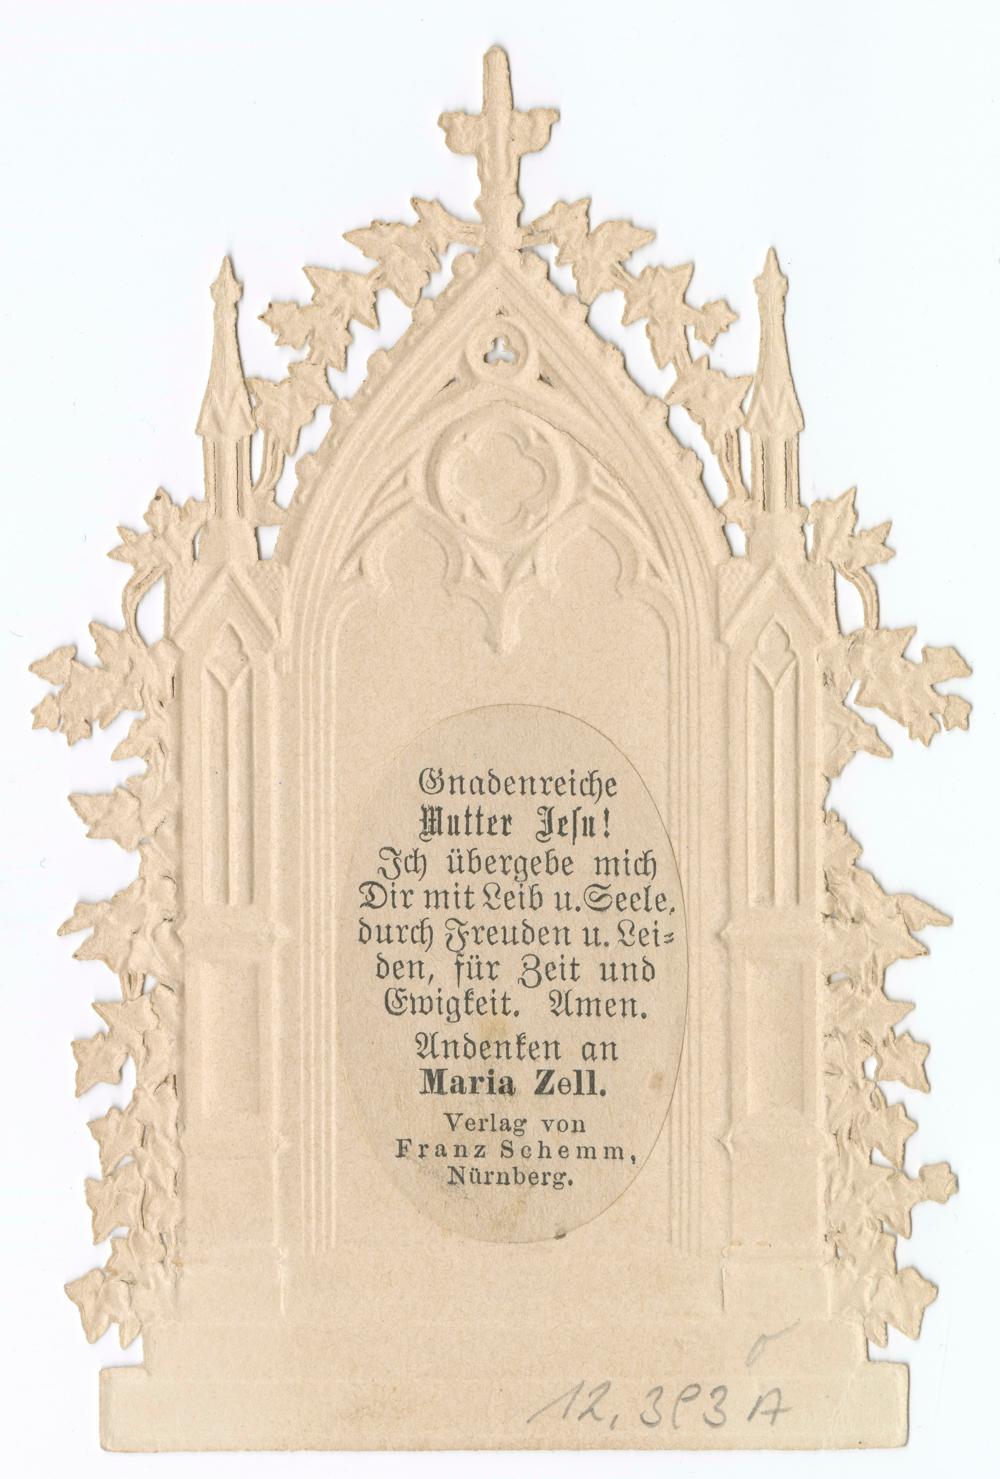 Gnadenreiche
Mutter Jesu!
Ich übergebe mich
Dir mit Leib u. Seele,
durch Freuden u. Lei-
den, für Zeit und
Ewigkeit. Amen.
Andenken an
Maria Zell.
Verlag von
Franz Schemm,
Nürnberg.